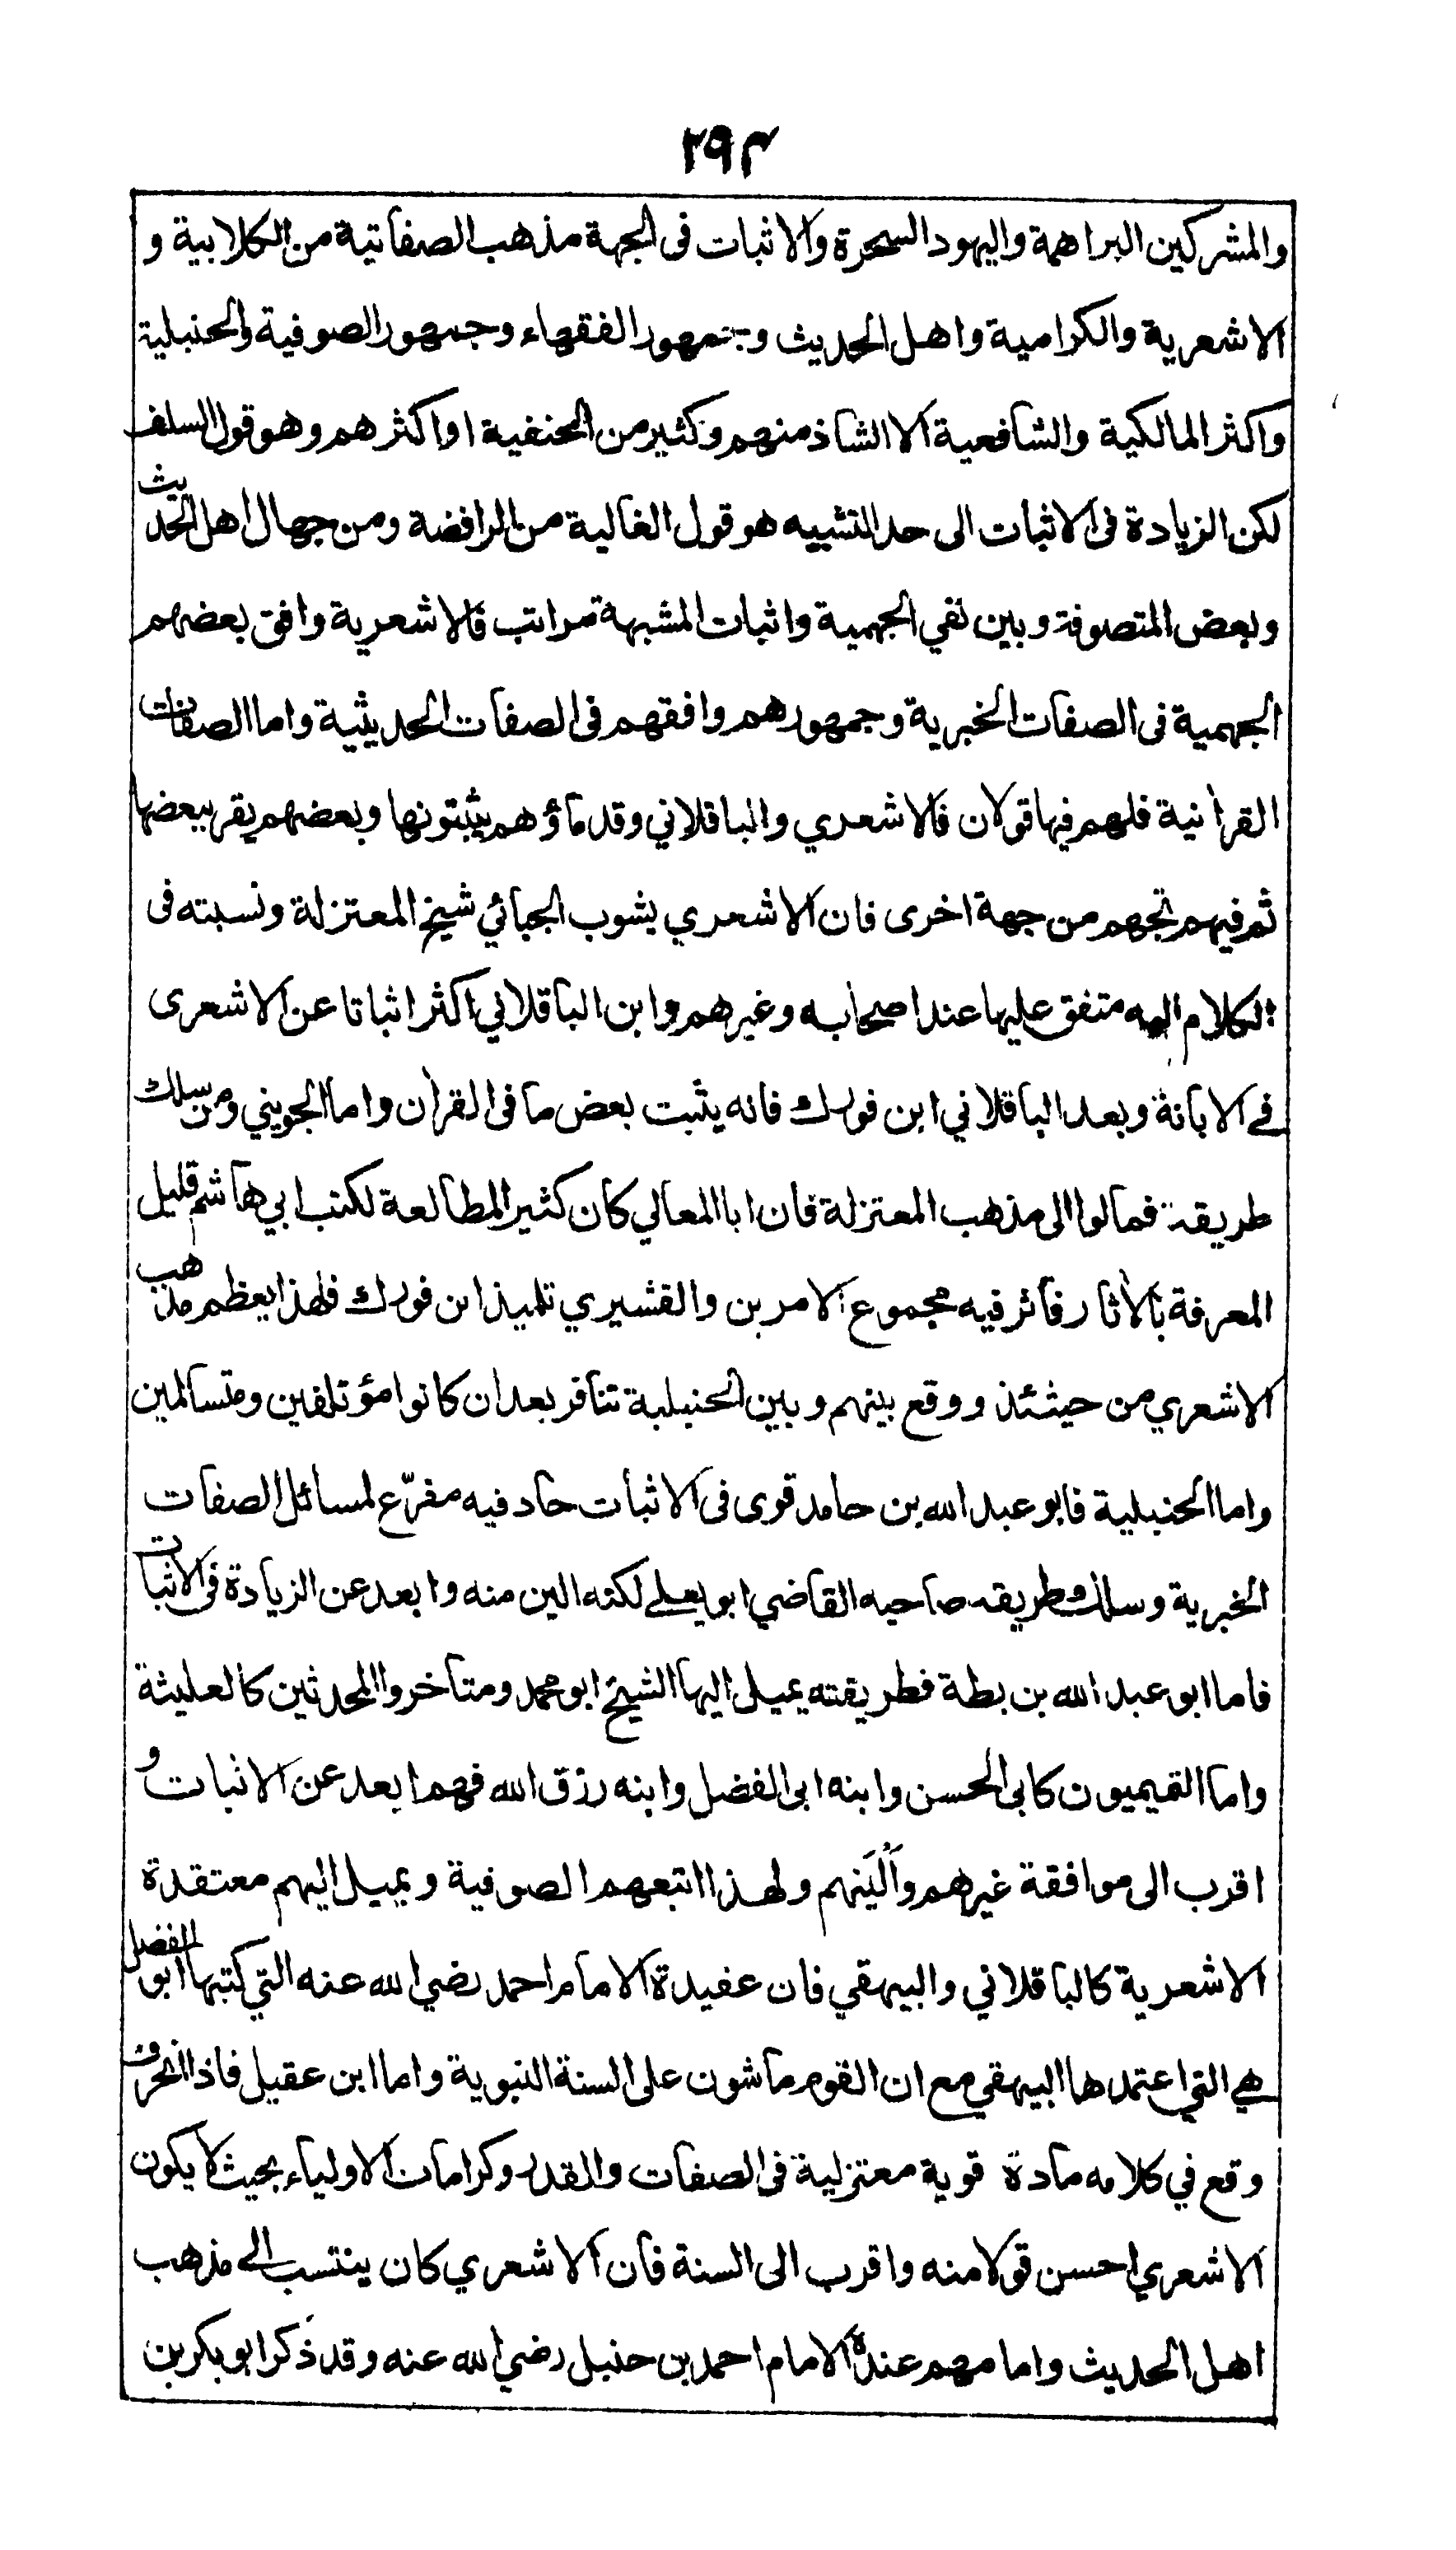 ٢٩٤
والمشركين البراهمة واليهود السحرة والاثبات فى الجهة مذهب الصفاتية من الكلابية و
الاشعرية والكرامية واهل الحديث وجمهور الفقهاء وجمهور الصوفية والحنبلية
واكثر المالكية والشافعية الا الشاذ منهم وكثير من الحنفية او اكثرهم وهو قول السلف
لكن الزيادة فى الاثبات الى حد التشبيه هو قول الغالية من الرافضة ومن جهال اهل الحديث
وبعض المتصوفة وبين نفي الجهمية واثبات المشبهة مراتب فالاشعرية وافق بعضهم
الجهمية فى الصفات الخبرية وجمهورهم وافقهم فى الصفات الحديثية واما الصفات
القرأنية فلهم فيها قولان فالاشعري والباقلاني وقدماؤهم يثبتونها وبعضهم يقر ببعضها
ثم فيهم تجهم من جهة اخرى فان الاشعري يشوب الجبائي شيخ المعتزلة ونسبته فى
الكلام اليه متفق عليها عند اصحابه وغيرهم وابن الباقلاني اكثر اثباتا عن الاشعرى
فے الابانة وبعد الباقلاني ابن فورك فانه يثبت بعض ما فى القرأن واما الجويني ومن سلك
طريقة فمالوا الى مذهب المعتزلة فان ابا المعالي كان كثير المطالعة لكتب ابي هاشم قليل
المعرفة بالأثار فاثر فيه مجموع الامرين والقشيري تلميذ ابن فورك فلهذا يعظم مذهب
الاشعري من حيثئذ ووقع بينهم وبين الحنبلية تنافر بعد ان كانوا مؤتلفين ومتسالمين
واما الحنبلية فابو عبد الله بن حامد قوى فى الاثبات حاد فيه مفرّع لمسائل الصفات
الخبرية وسلك طريقه صاحبه القاضي ابو يعلے لكنه الين منه وابعد عن الزيادة فى الاثبات
فاما ابو عبد الله بن بطة فطريقته يميل اليها الشيخ ابو محمد ومتأخروا المحدثين كالعليثة
واما التميميون كابى الحسن وابنه ابى الفضل وابنه رزق الله فهم ابعد عن الاثبات و
اقرب الى موافقة غيرهم وأَلْيَنهم ولهذا اتبعهم الصوفية ويميل اليهم معتقدة
الاشعرية كالباقلاني والبيهقي فان عفيدة الامام احمد رضي الله عنه التي كتبها ابو الفضل
هي التي اعتمدها البيهقي مع ان القوم ماشون على السنة النبوية واما ابن عقيل فاذا انحرف
وقع في كلامه مادة قوية معتزلية فى الصفات والقدر وكرامات الاولياء بحيث لا يكون
الاشعري احسن قولا منه واقرب الى السنة فان الاشعري كان ينتسب الے مذهب
اهل الحديث وامامهم عنده الامام احمد بن حنبل رضي الله عنه وقد ذكر ابو بكر بن